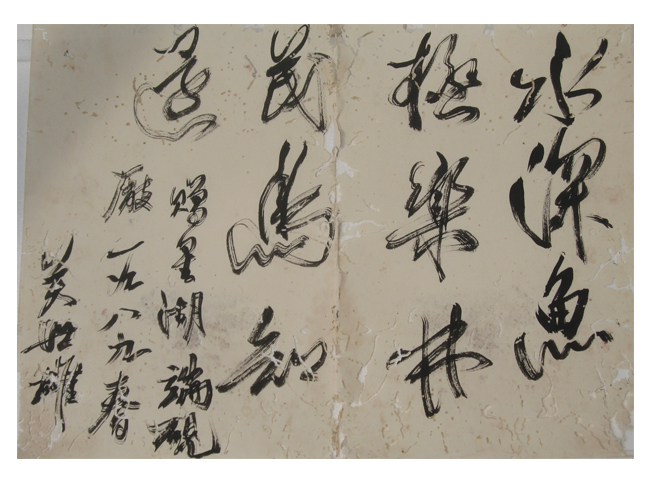 水深魚
極樂林
茂鳥知
還
贈星湖端硯
廠一九八九春
雄